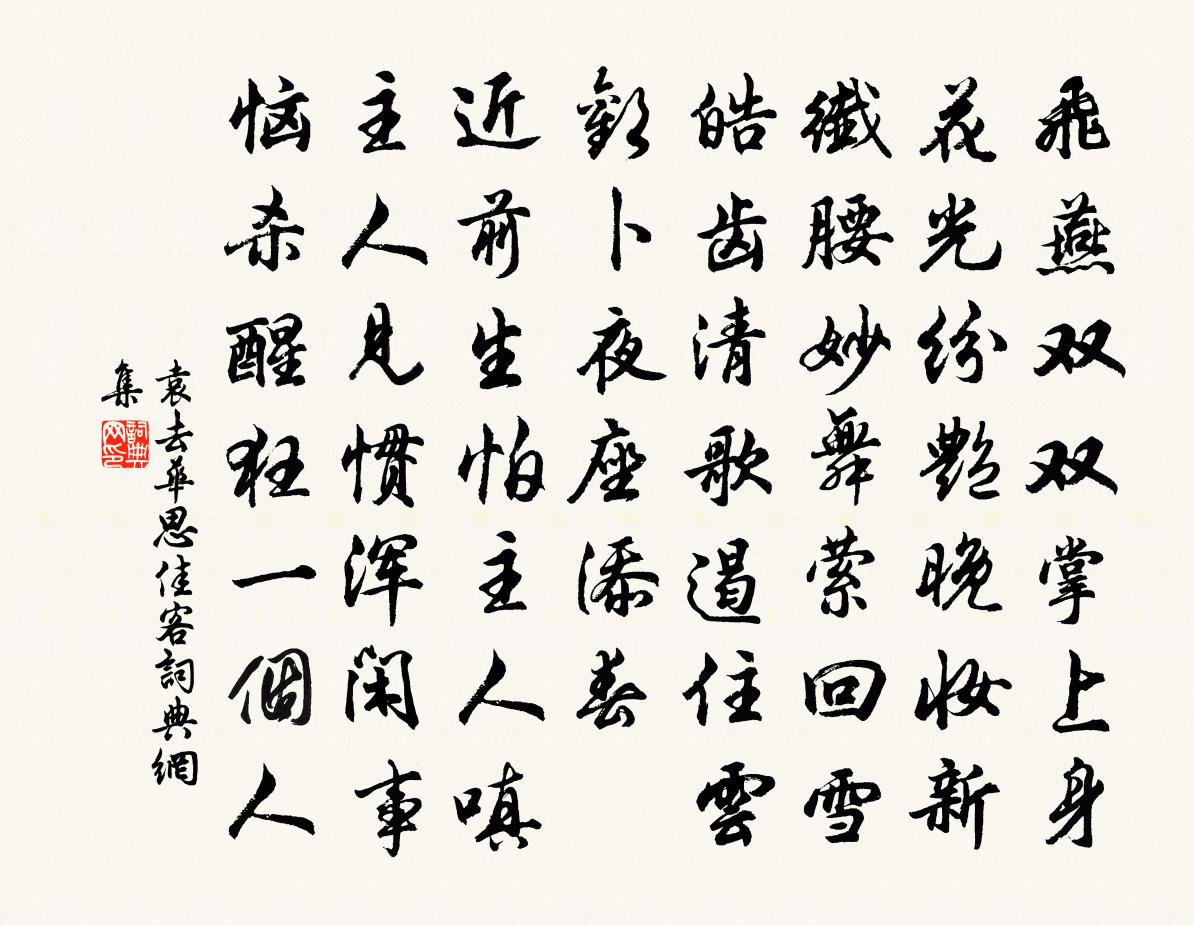 飛燕双双掌上身
花光纷艷晚妝新
纖腰妙舞萦回雪
皓齿清歌遏住雲
歡卜夜座添春
近前生怕主人嗔
主人見惯浑闲事
恼杀醒狂一個人
袁去華思佳客詞典網
集
詞典网印